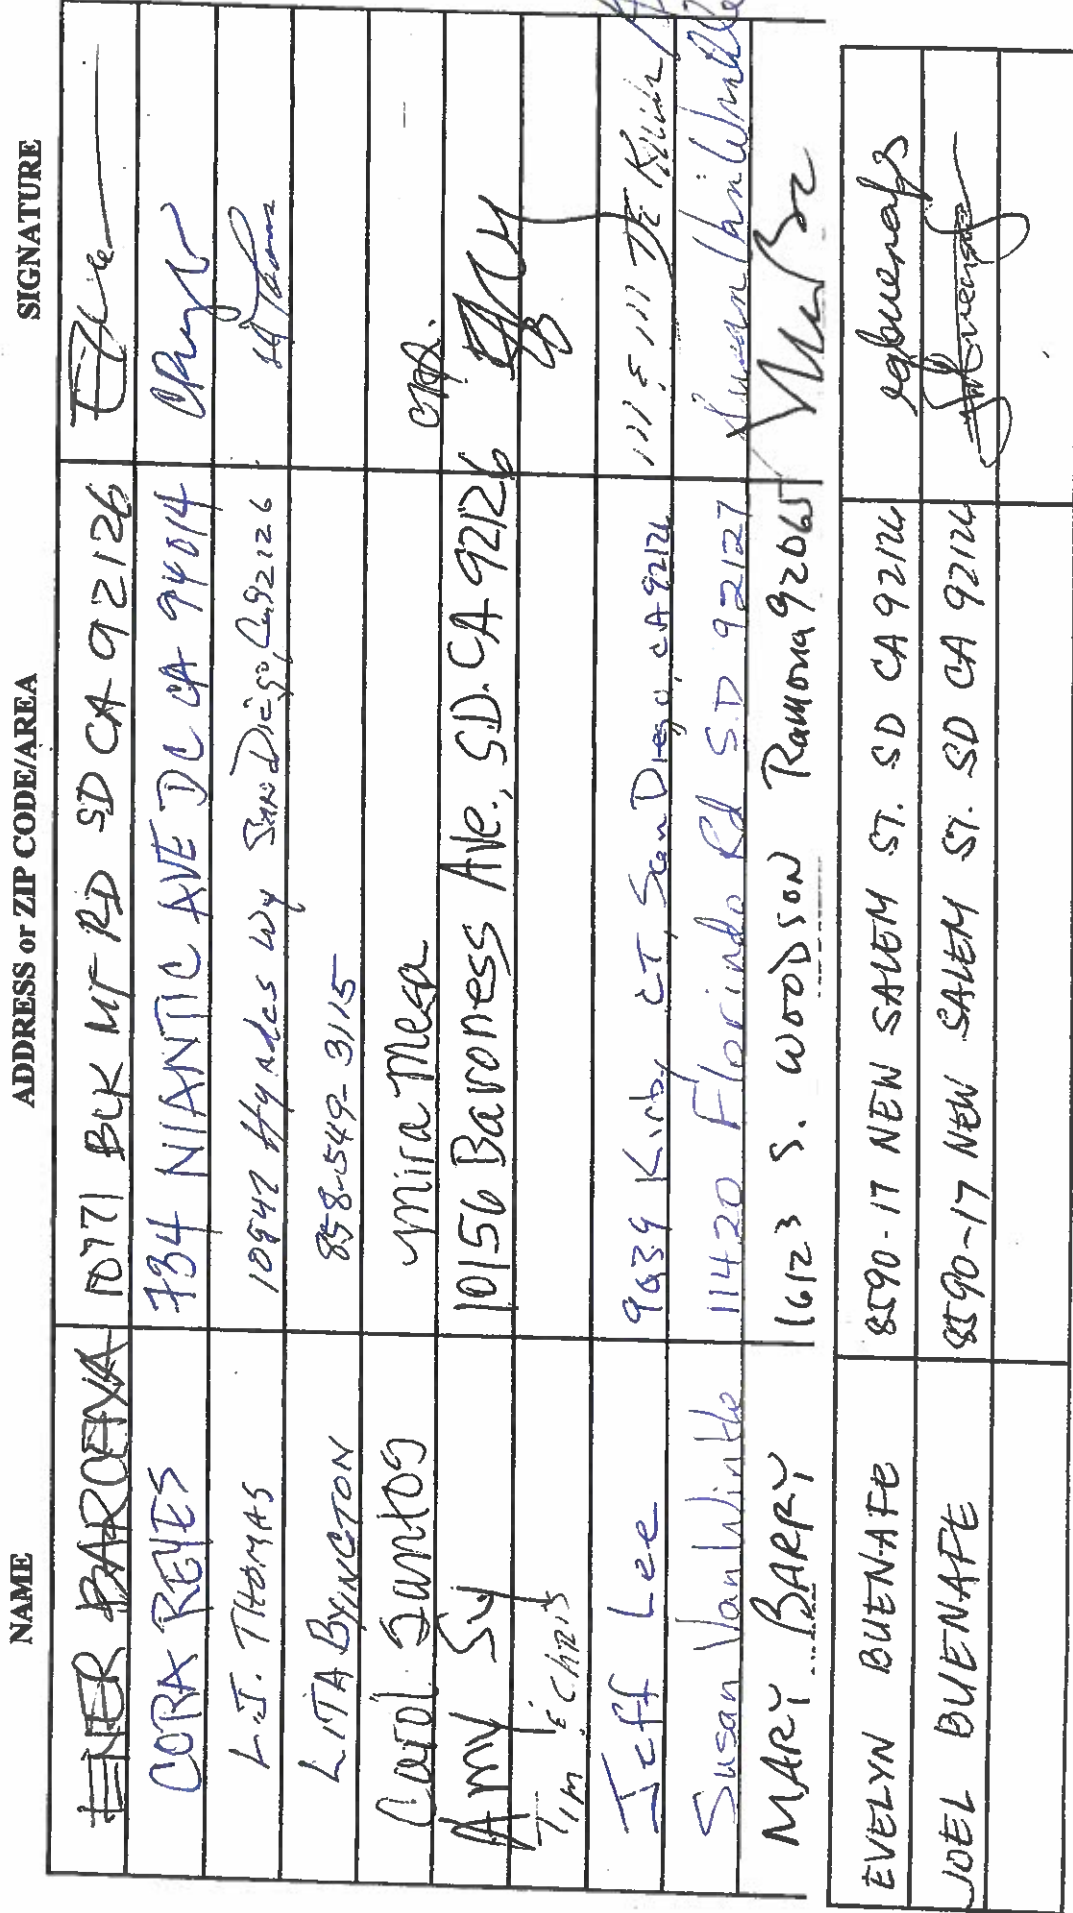 NAME ADDRESS or ZIP CODE/AREA SIGNATURE
ENER BAROENA 10771 BLK MT RD SD CA 92126
CORA REYES 734 NIANTIC AVE DC CA 94014 CReyes
L.J. THOMAS 10847 Hyades Wy San Diego, Ca 92126 LJ Thomas
LITA BYINGTON 858-549-3115
Carol Santos Mira Mesa
Amy Sy 10156 Baroness Ave., S.D. CA 92126
Tim & Chris
Jeff Lee 9639 Kirby CT, San Diego, CA 92126
Susan Van Winkle 11420 Florindo Rd S.D 92127 Susan Van Winkle
MARY BARRY 16123 S. WOODSON Ramona 92065
EVELYN BUENAFE 8590-17 NEW SALEM ST. SD CA 92126 egbuenafe
JOEL BUENAFE 8590-17 NEW SALEM ST. SD CA 92126